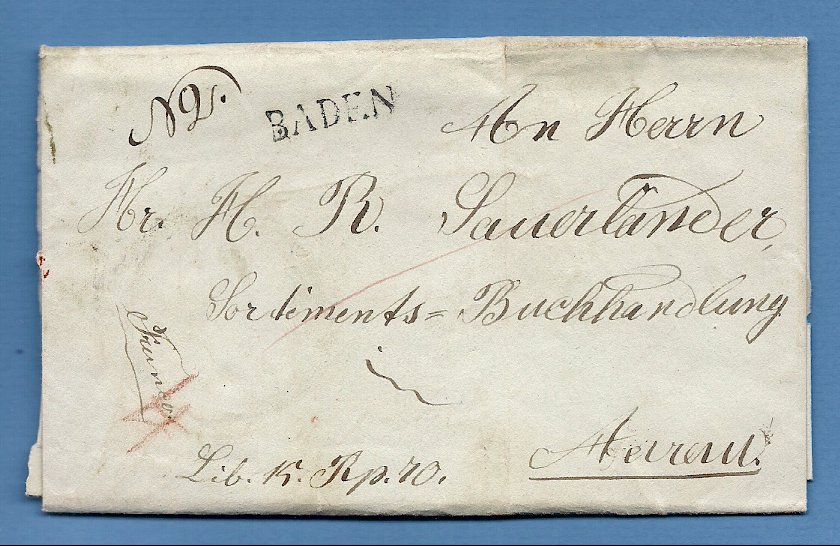 N 2.
BADEN
An Herrn
Hr. H. R. Sauerländer,
Sortiments=Buchhandlung
in
Franco.
Aarau.
Lib. 15. Rp. 70.